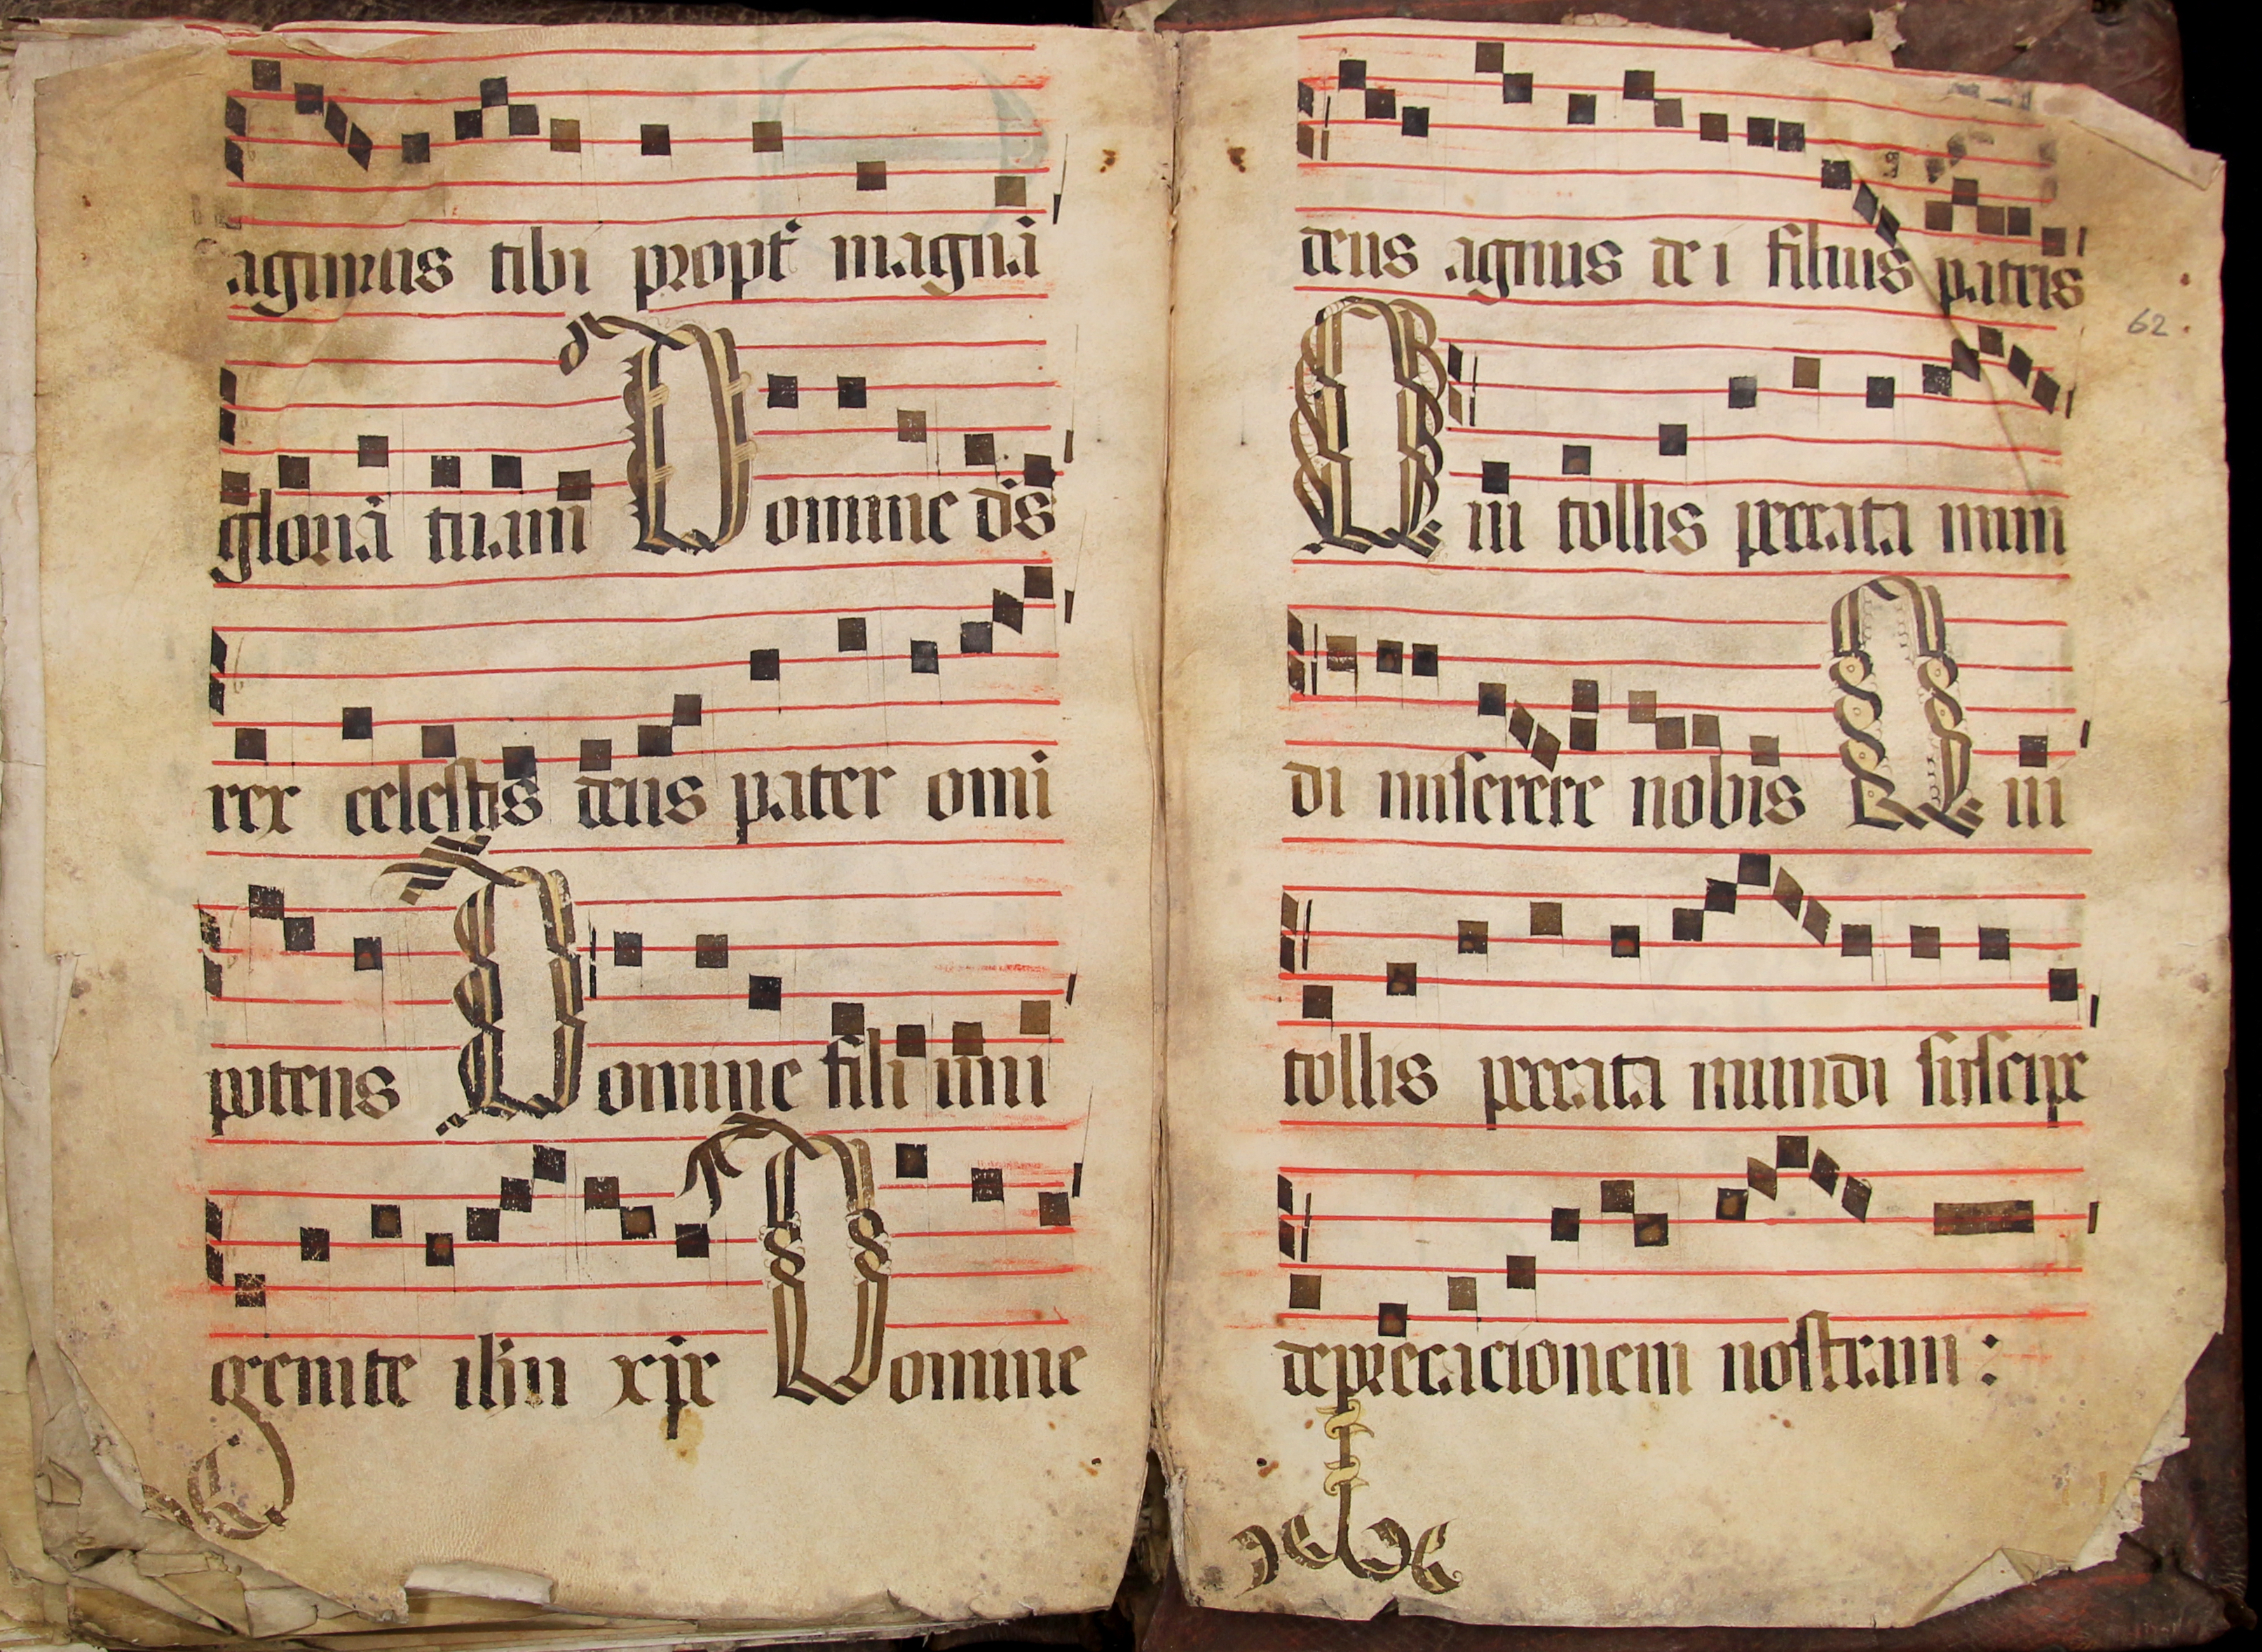 agimus tibi propt magnā
gloriā tuam Domine ds̄
rex celestis deus pater omi
potens Domine fili uni
genite ihū xpe Domine
deus agnus dei filius patris
62
Qui tollis peccata mun
di miserere nobis Qui
tollis peccata mundi suscipe
deprecacionem nostram :